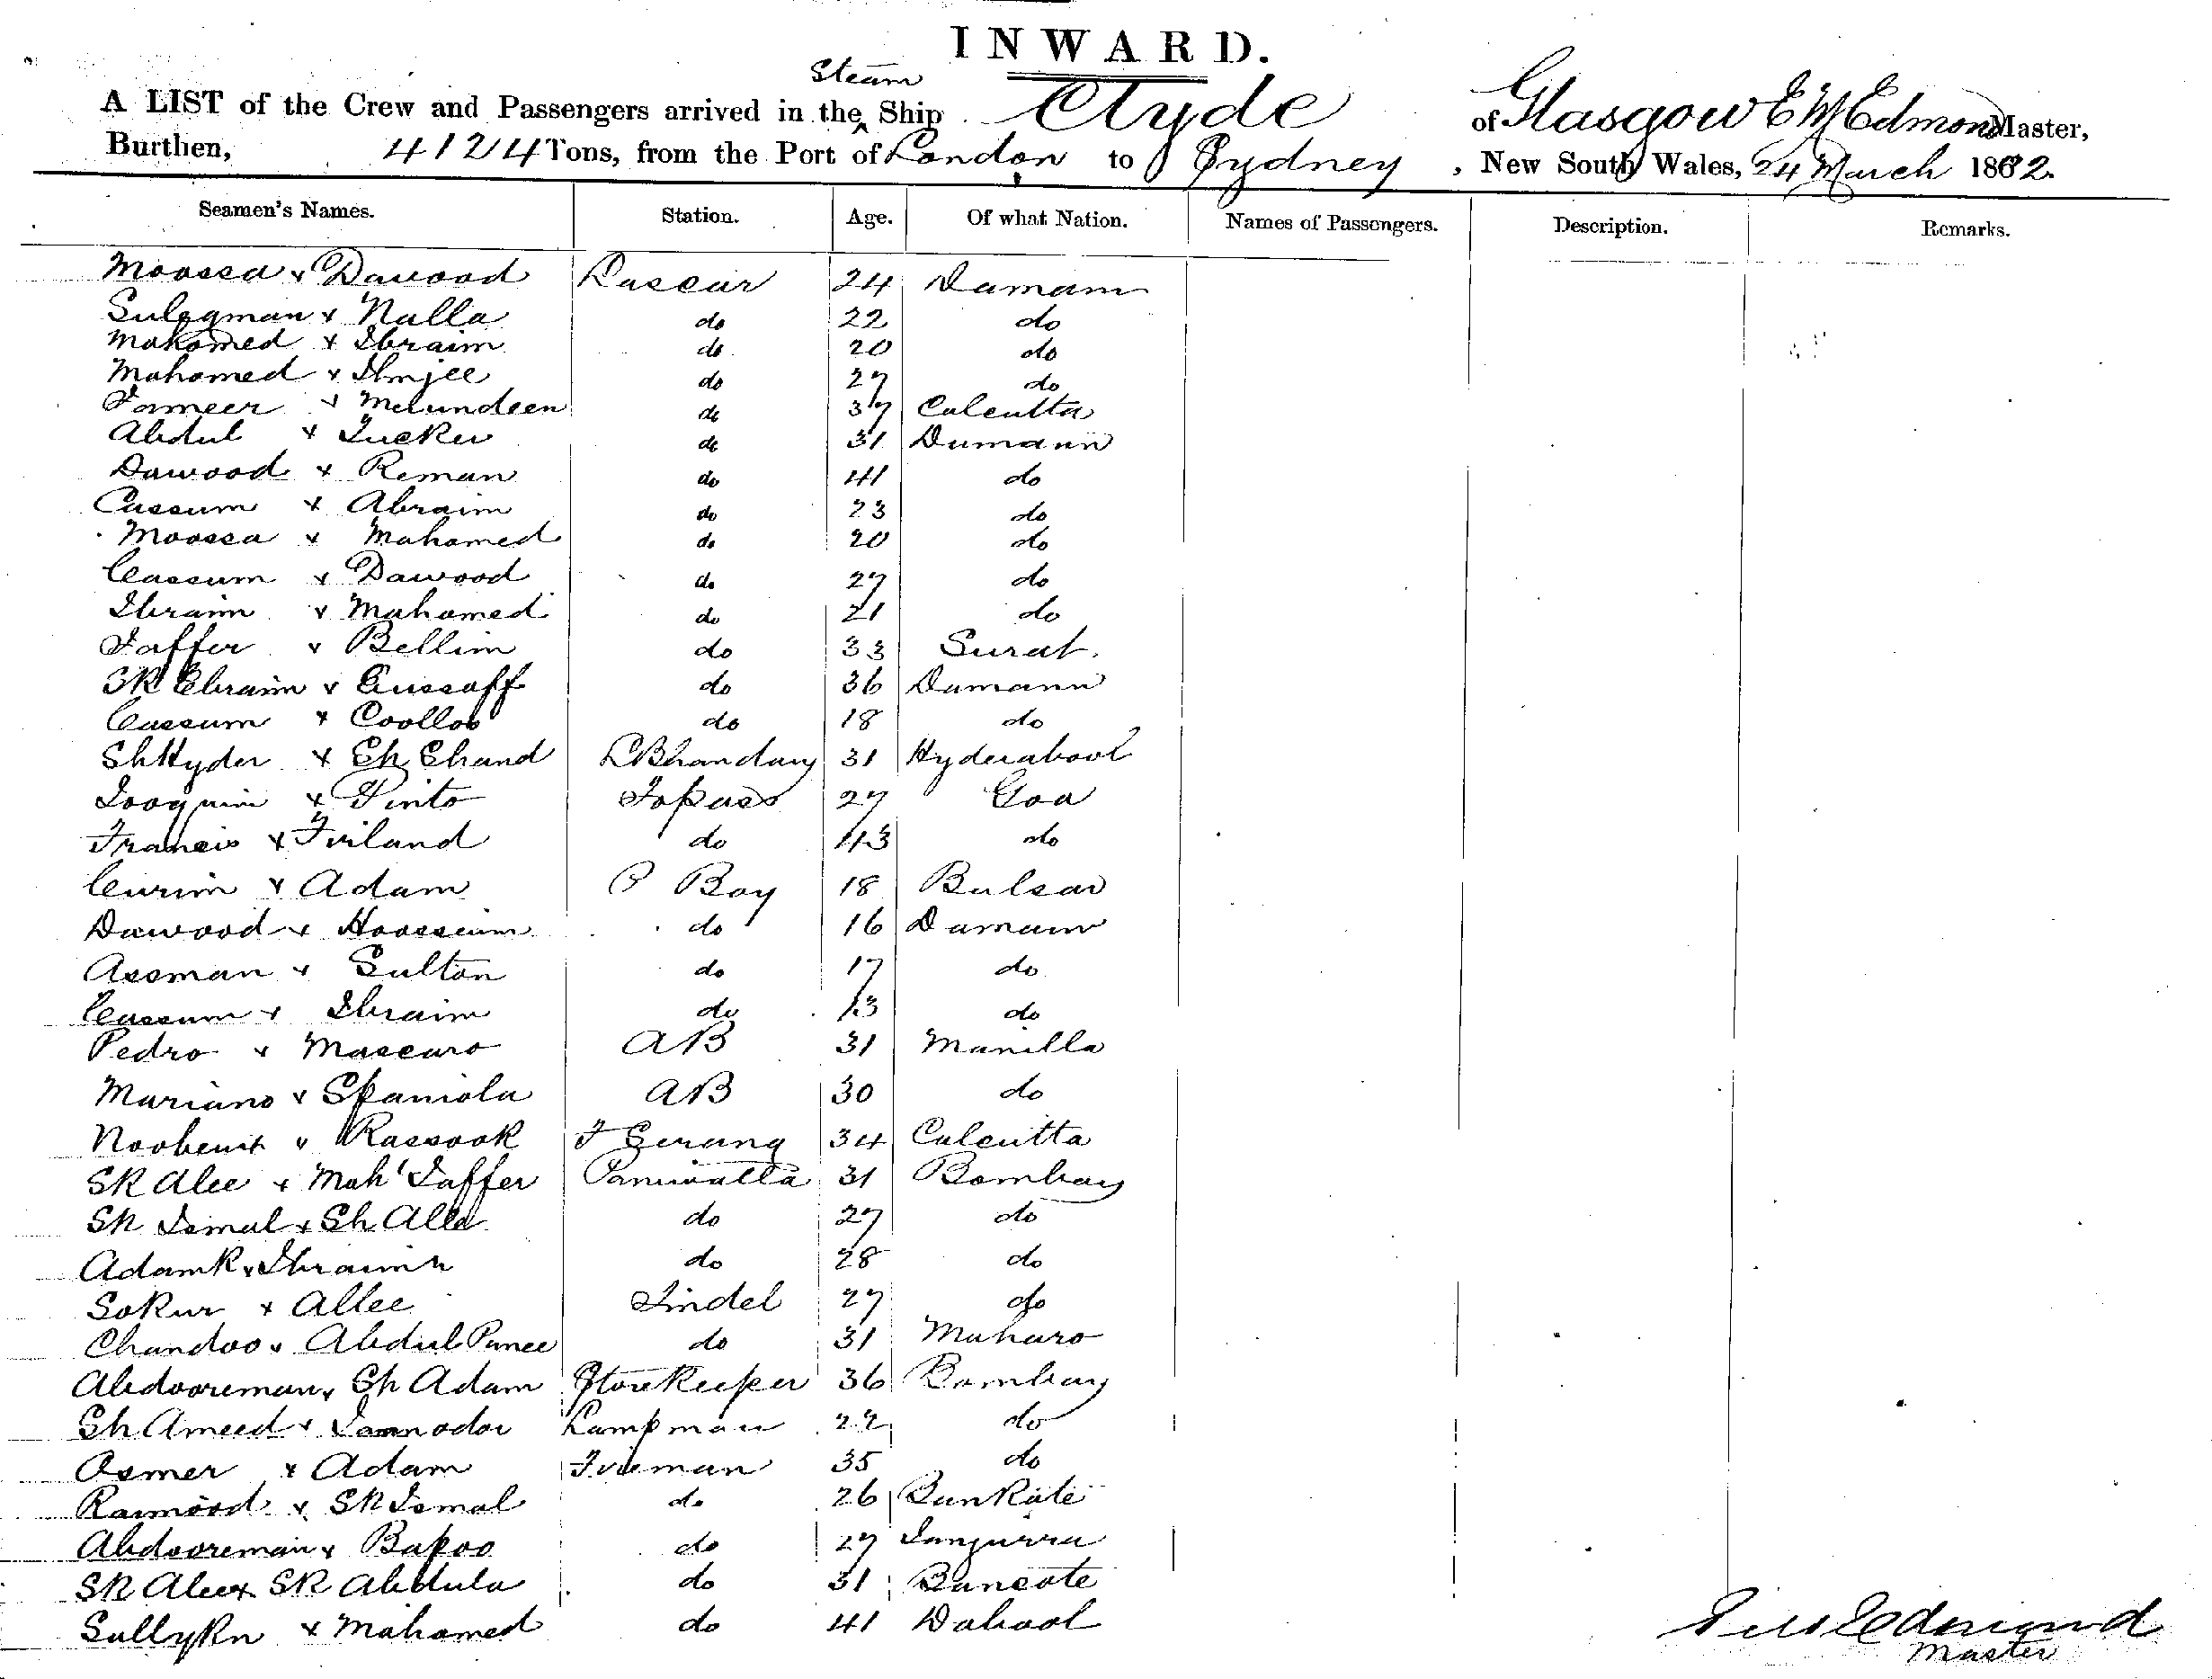 INWARD.
Steam
A LIST of the Crew and Passengers arrived in the ^ Ship Clyde of Glasgow E W Edmond Master,
Burthen, 4124 Tons, from the Port of London to Sydney, New South Wales, 24 March 1882.
Seamen's Names. Station. Age. Of what Nation. Names of Passengers. Description. Remarks.
Moossa x Dawood Lascar 24 Damam
Suleyman x Nalla do 22 do
Mahomed x Ibraim do 20 do
Mahomed x do 27 do
x do 37 Calcutta
Abdul x do 31 Dumann
Dawood x Reman do 41 do
Cassum x Abraim do 23 do
Moossa x Mahomed do 20 do
Cassum x Dawood do 27 do
Ibraim x Mahomed do 21 do
Jaffer x Bellim do 33 Surat.
SK Ebraim x Eussoff do 36 Damann
Cassum x Coollob do 18 do
Sh Hyder x Sh Chand Bhandary 31 Hyderabool
Joaquim x Pinto Topass 27 Goa
Francis x do 43 do
Curim x Adam P Boy 18 Bulsar
Dawood x Hoosseim do 16 Damam
Assman x Sultan do 17 do
Cassum x Ibraim do 13 do
Pedro x Mascaro AB 31 Manilla
Mariano x Spaniola AB 30 do
x Rassook F Serang 34 Calcutta
SK Alee x Mah Jaffer Paniwalla 31 Bombay
SK Ismal x Sh Alla do 27 do
Adam K x Ibraim do 28 do
Sokur x Allee Tindel 27 do
Chandoo x Abdul do 31 Maharo
Abdooreman x Sh Adam Storekeeper 36 Bombay
Sh Ameed x Lampman do
Osmer x Adam Fireman 35 do
x SK Ismal do 26 Bunkote
Abdooreman x Bapoo do 27
SK Alee x SK Abdula do 31 Buncote
x Mahomed do 41 Dabool
E W Edmond
Master